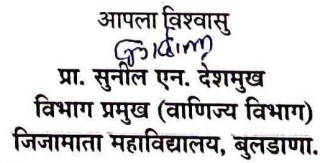 आपला विश्वासु
प्रा. सुनील एन. देशमुख
विभाग प्रमुख (वाणिज्य विभाग)
जिजामाता महाविद्यालय, बुलडाणा.